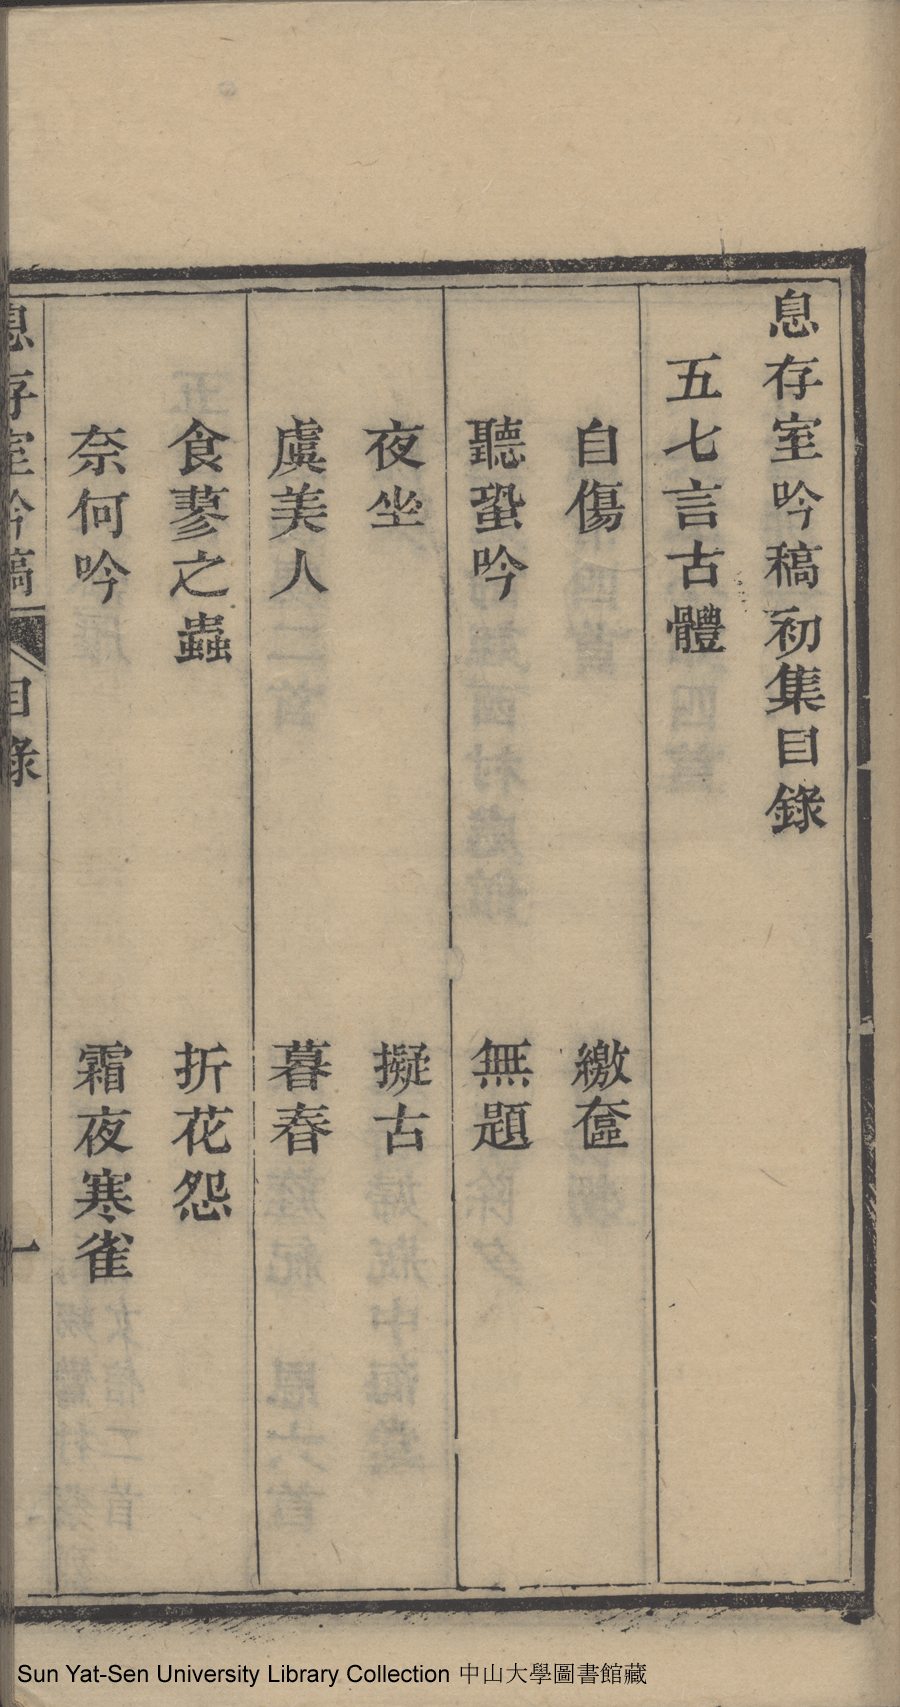 息存室吟稿初集目錄
五七言古體
自傷
繳奩
聽蛩吟
無題
夜坐
擬古
虞美人
暮春
食蓼之蟲
折花怨
奈何吟
霜夜寒雀
息存室吟稿
目錄
一
Sun Yat-Sen University Library Collection 中山大學圖書館藏